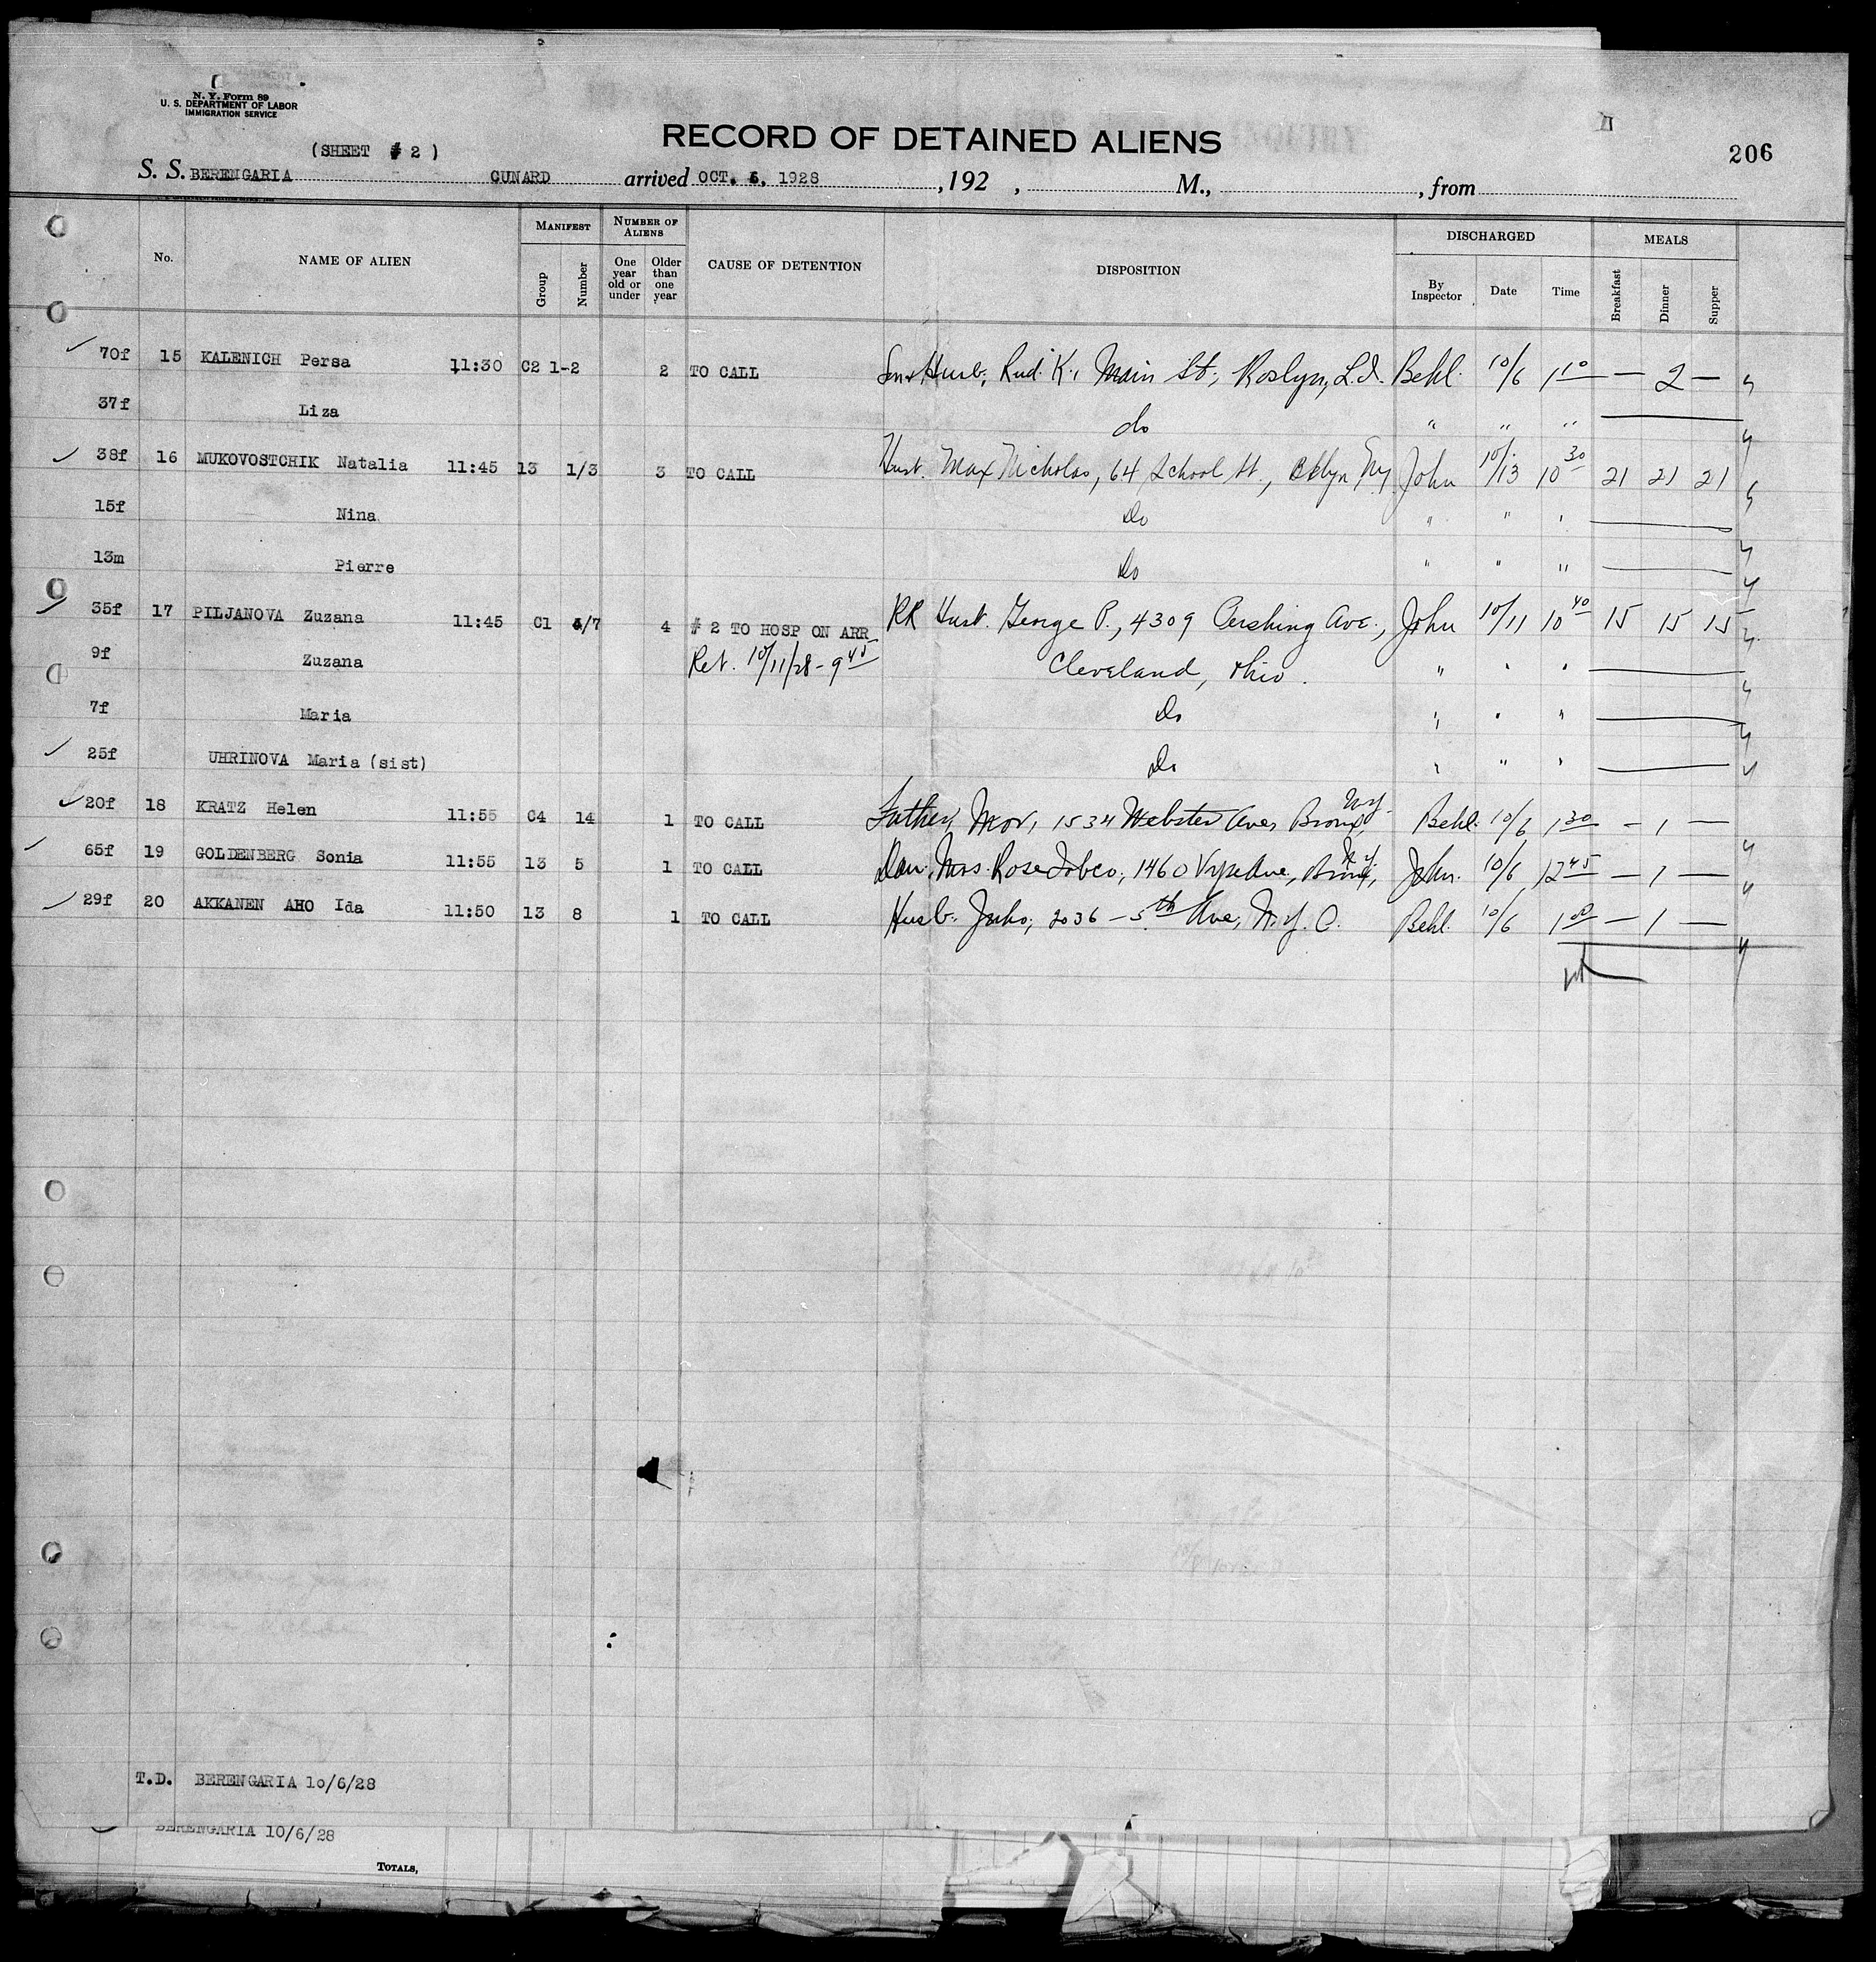 N. Y. Form 89
U. S. DEPARTMENT OF LABOR
IMMIGRATION SERVICE
RECORD OF DETAINED ALIENS
206
(SHEET # 2)
S. S. BERENGARIA CUNARD arrived OCT. 6, 1928 , 192 , M., , from
No. NAME OF ALIEN MANIFEST Group Number NUMBER OF ALIENS One year old or under Older than one year CAUSE OF DETENTION DISPOSITION DISCHARGED By Inspector Date Time MEALS Breakfast Dinner Supper
70f 15 KALENICH Persa 11:30 C2 1-2 2 TO CALL Husb, Rud. K., Main St., Roslyn, L.I. Behl. 10/6 1 10 — 2 —
37f Liza do " " "
38f 16 MUKOVOSTCHIK Natalia 11:45 13 1/3 3 TO CALL Husb. Max Nicholas, 64 School St., Ny John 10/13 10 30 21 21 21
15f Nina Do " " "
13m Pierre Do " " "
35f 17 PILJANOVA Zuzana 11:45 C1 4/7 4 # 2 TO HOSP ON ARR RR Husb. George P., 4309 Pershing Ave., John 10/11 10 40 15 15 15
9f Zuzana Ret. 10/11/28 - 9 45 Cleveland, Ohio. " " "
7f Maria Do " " "
25f UHRINOVA Maria (sist) Do " " "
20f 18 KRATZ Helen 11:55 C4 14 1 TO CALL Father, Mor, 1534 Webster Ave, Bronx, N.Y. Behl. 10/6 1 30 — 1 —
65f 19 GOLDENBERG Sonia 11:55 13 5 1 TO CALL Dau. Mrs. Rose 1460 Vyse Ave., Bronx, N.Y. John. 10/6 12 45 — 1 —
29f 20 AKKANEN AHO Ida 11:50 13 8 1 TO CALL Husb. Juho, 2036 - 5th Ave, N.Y.C. Behl. 10/6 1 00 — 1 —
T.D. BERENGARIA 10/6/28
BERENGARIA 10/6/28
TOTALS,